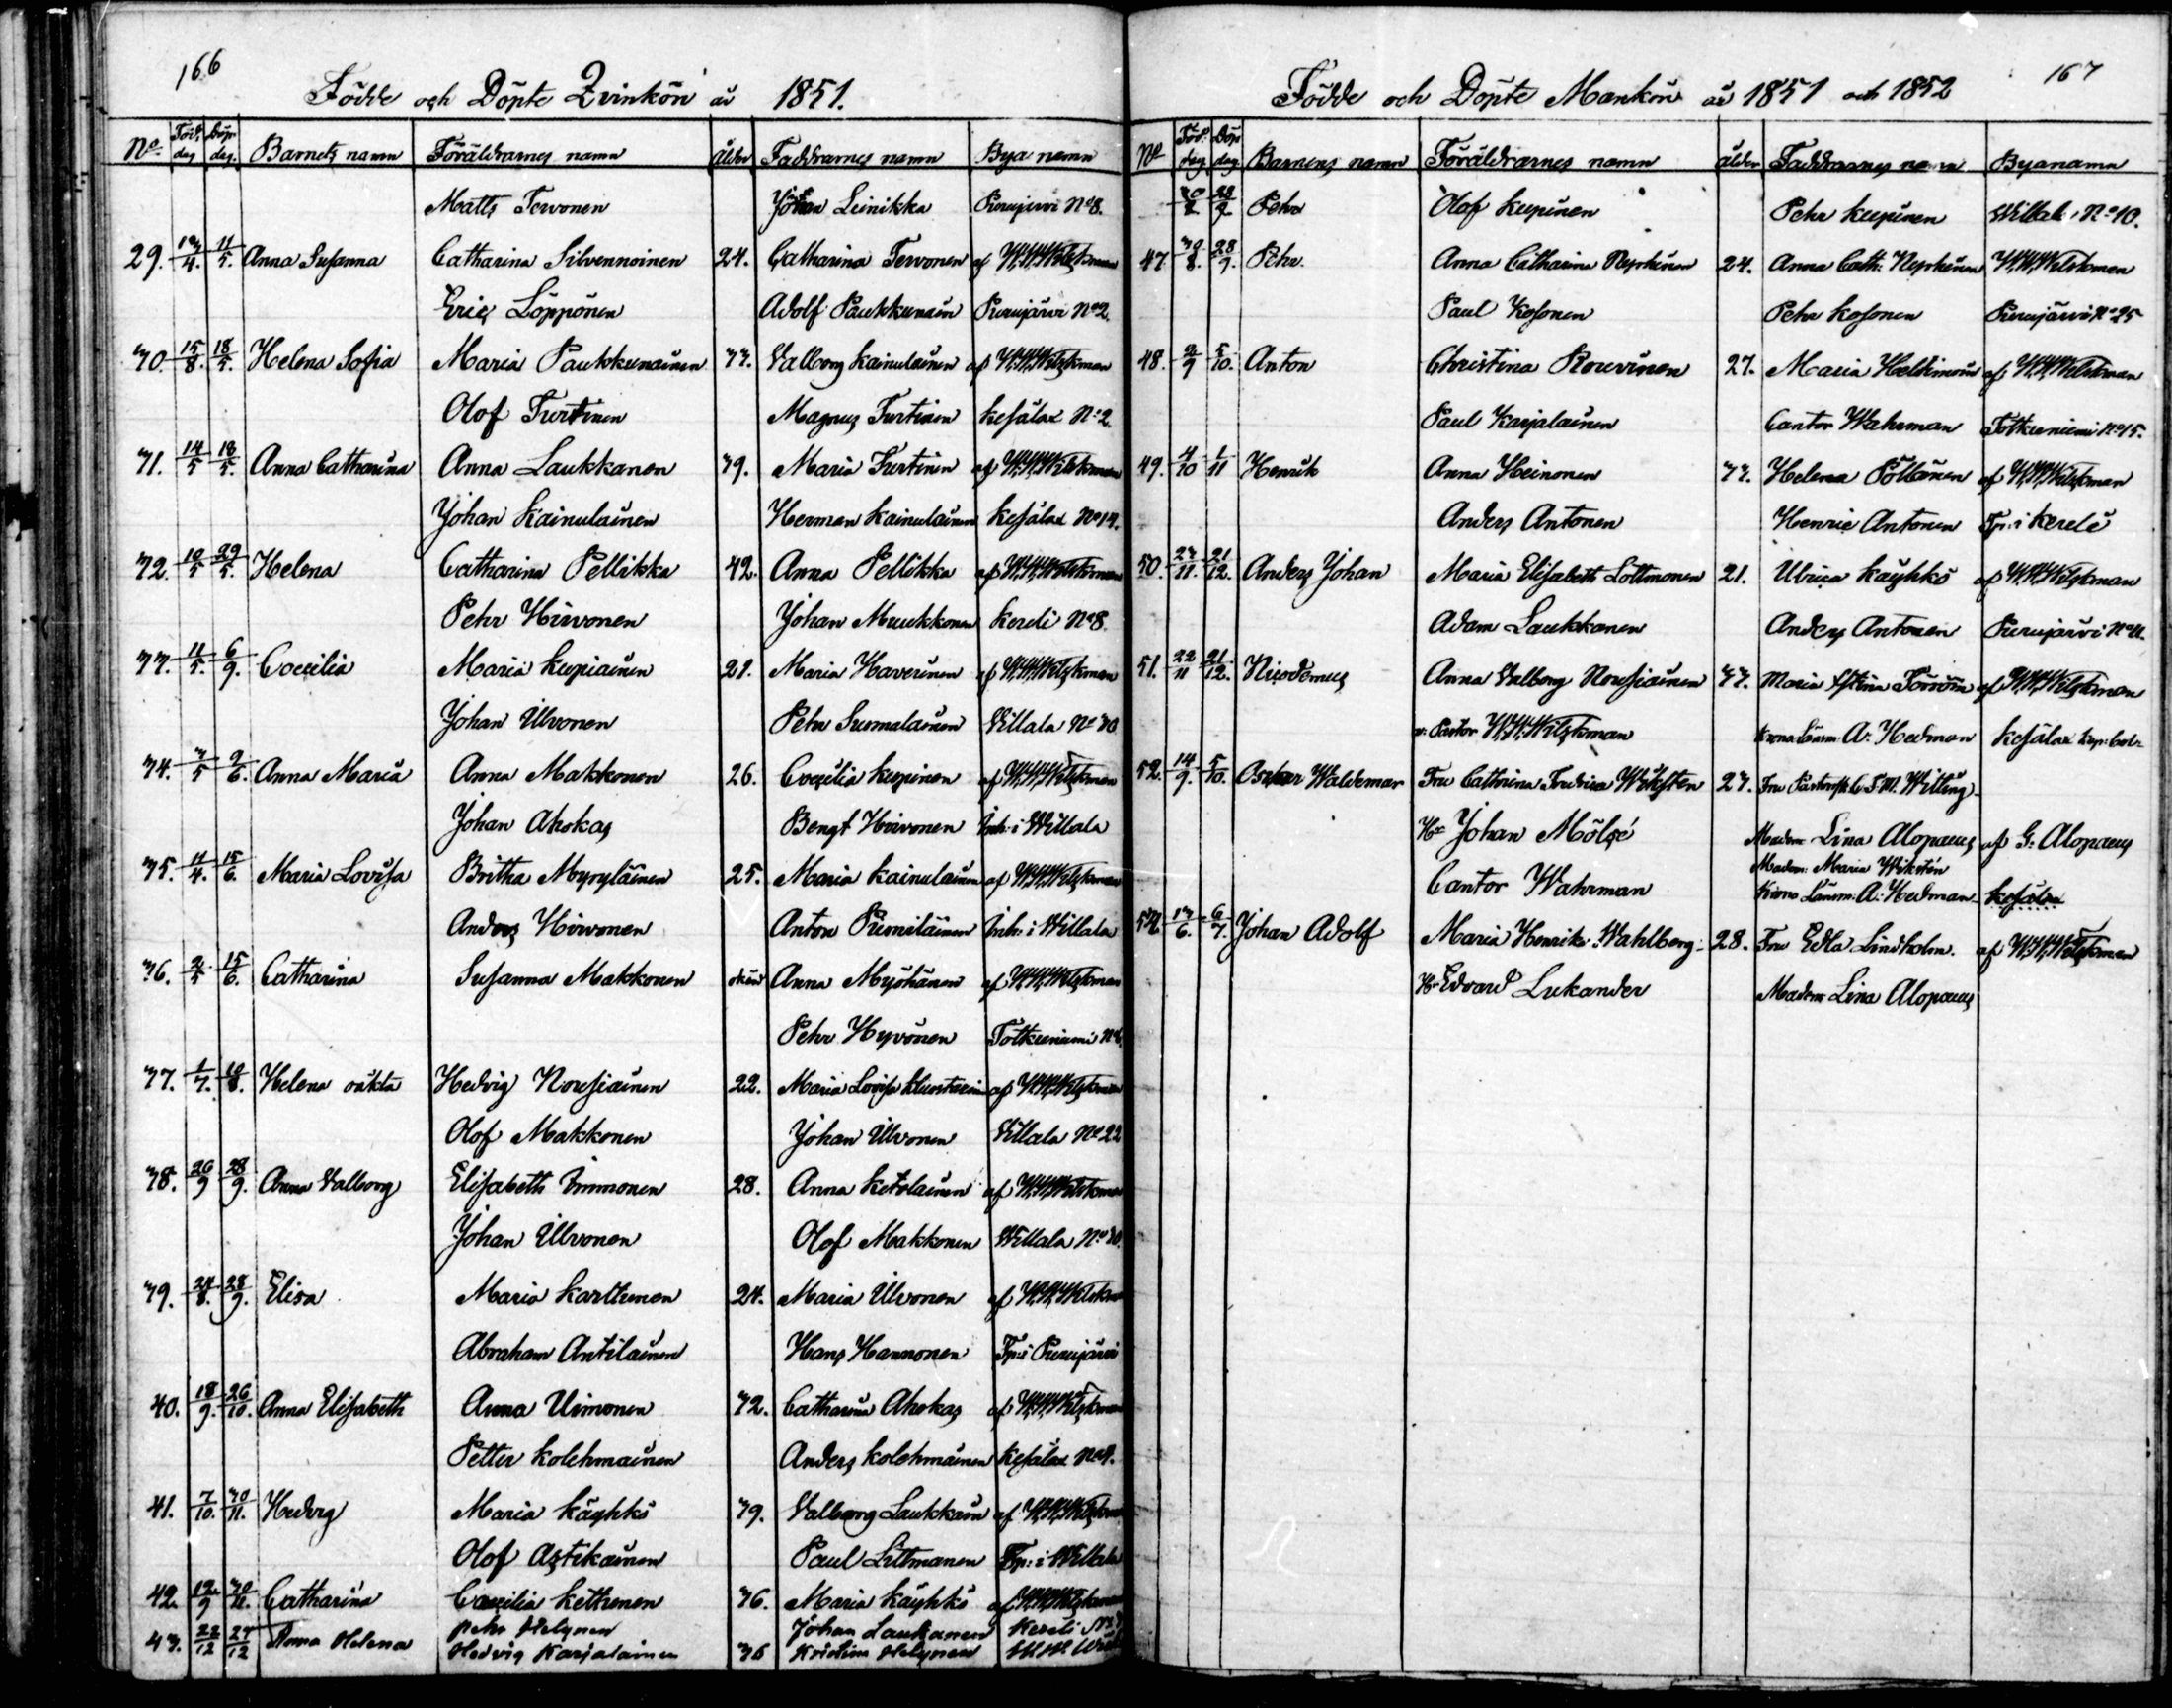 166
Födde och Döpte Qvinkön år 1851.
No Föd. dag Döp. dag. Barnets namn Föräldrarnes namn ålder Faddrarnes namn Bya namn
Matts Tervonen Johan Leinikka Purujärvi No 8.
29. 11/5. Anna Susanna Catharina Silvennoinen 24. Catharina Tervonen af W.W.Wilskman
Eric Löppönen Adolf Paukkunain Purujärvi No 2.
30. 15/8. 18/5. Helena Sofia Maria Paukkunainen 33. Valborg Kainulainen af W.W.Wilskman
Olof Turtinen Magnus Turtinen Kesälax No 2
31. 14/5 18/5. Anna Catharina Anna Laukkanen 39. Maria Turtinen af W.W.Wilskman
Johan Kainulainen Herman Kainulainen Kesälax No 14.
32. 10/5 29/5. Helena Catharina Pellikka 42. Anna Pellikka af W.W.Wilskman
Pehr Hirvonen Johan Muukkonen Kereli No 8.
33. 11/5. 6/9. Coecilia Maria Kupiainen 21. Maria Haverinen af W.W.Wilskman
Johan Ulvonen Pehr Surmalainen Villala No 30
34. 3/5 9/6. Anna Maria Anna Makkonen 26. Coecilia Kupinen af W.W.Wilskman
Johan Ahokas Bengt Hirvonen Inh. i Willala
35. 11/4. 15/6. Maria Lovisa Britha Myryläinen 25. Maria Kainulainen af W.W.Wilskman
Anders Hirvonen Anton Pirniläinen Inh. i Willala
36. 2/5 15/6. Catharina Susanna Makkonen Anna Myöhänen af W.W.Wilskman
Pehr Hyvönen Totkuniemi
37. 1/7. 10/8. Helena oäkta Hedvig Nousiainen 22. Maria Lovisa af W.W.Wilskman
Olof Makkonen Johan Ulvonen Villala No 22
38. 26/9 28/9. Anna Valborg Elisabeth Immonen 28. Anna Ketolainen af W.W.Wilskman
Johan Ulvonen Olof Makkonen Willala No 30.
39. 24/8. 28/9. Elisa Maria Karttunen 24. Maria Ulvonen af W.W.Wilskman
Abraham Antilainen Hans Hannonen Tp: i Purujärvi
40. 18/9. 26/10. Anna Elisabeth Anna Uimonen 32. Catharina Ahokas af W.W.Wilskman
Petter Kolehmainen Anders Kolehmainen Kesälax No 9.
41. 7/10. 30/11. Hedvig Maria Käyhkö 39. Valborg Laukkain af W.W.Wilskman
Olof Astikainen Paul Littmanen Tp: i Willala
42. 12/9 30/11. Catharina Caecilia Kettunen 36. Maria Käyhkö af W.W.Wilskman
Pehr Helynen Johan Laukanen Kereli
43. 22/12 27/12 Anna Helena Hedvig Karjalainen 36 Kristina Helynen W.W.
167
Födde och Döpte Mankön år 1851 och 1852
No Föd. dag Döp dag Barnens namn Föräldrarnes namn ålder Faddrarnes namn Byanamn
28/9 Pehr Olof Kupinen Pehr Kupinen Willala No 10.
47 30/8. 28/9. Pehr. Anna Catharina Nepkinen 24. Anna Cath: Nepkinen W.W.Wilskman
Paul Kosonen Pehr Kosonen Purujärvi No 25
48. 2/9 5/10. Anton Christina Rouvinen 27. Maria af W.W.Wilskman
Paul Karjalainen Cantor Wahrman Totkuniemi No 15.
49. 4/10 1/11 Henrik Anna Heinonen 33. Helena Pöllänen af W.W.Wilskman
Anders Antonen Henric Antonen Tp: i Kerele
50. 23/11. 21/12. Anders Johan Maria Elisabeth Lottmonen 21. Ulrica Käyhkö af W.W.Wilskman
Adam Laukkanen Anders Antonen Purujärvi
51. 22/11 21/12. Nicodemus Anna Valborg Nousiainen 33. Maria Törrönen af W.W.Wilskman
v. Pastor W.W.Wilskman Krono Länsm. A. Hedman Kesälax
52. 14/9. 5/10. Oskar Waldemar Fru Cathrina Fredrica Wiksten 23. Fru Witting
Hr Johan Mölsé Madem: Lina Alopaeus af G. Alopaeus
Madem: Maria Wikstén
Cantor Wahrman Krono Länsm: A. Hedman Kesälax
13/6. 6/7. Johan Adolf Maria Henrik: Wahlberg 28. Fru Edla Lindholm. af W.W.Wilskman
Hr Edvard Lukander Madem Lina Alopaeus